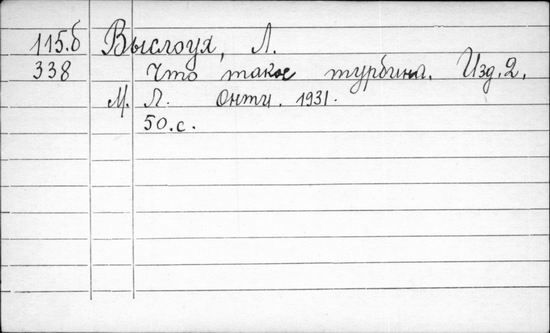 115.б Выслоух, Л.
338 Что такое турбина. Изд. 2.
М. Л. Онти. 1931.
50.с.